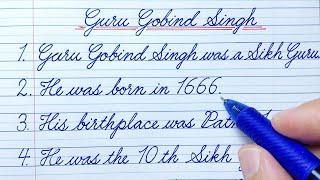 Guru Gobind Singh
1. Guru Gobind Singh was a Sikh Guru
2. He was born in 1666.
3. His birthplace was
4. He was the 10th Sikh